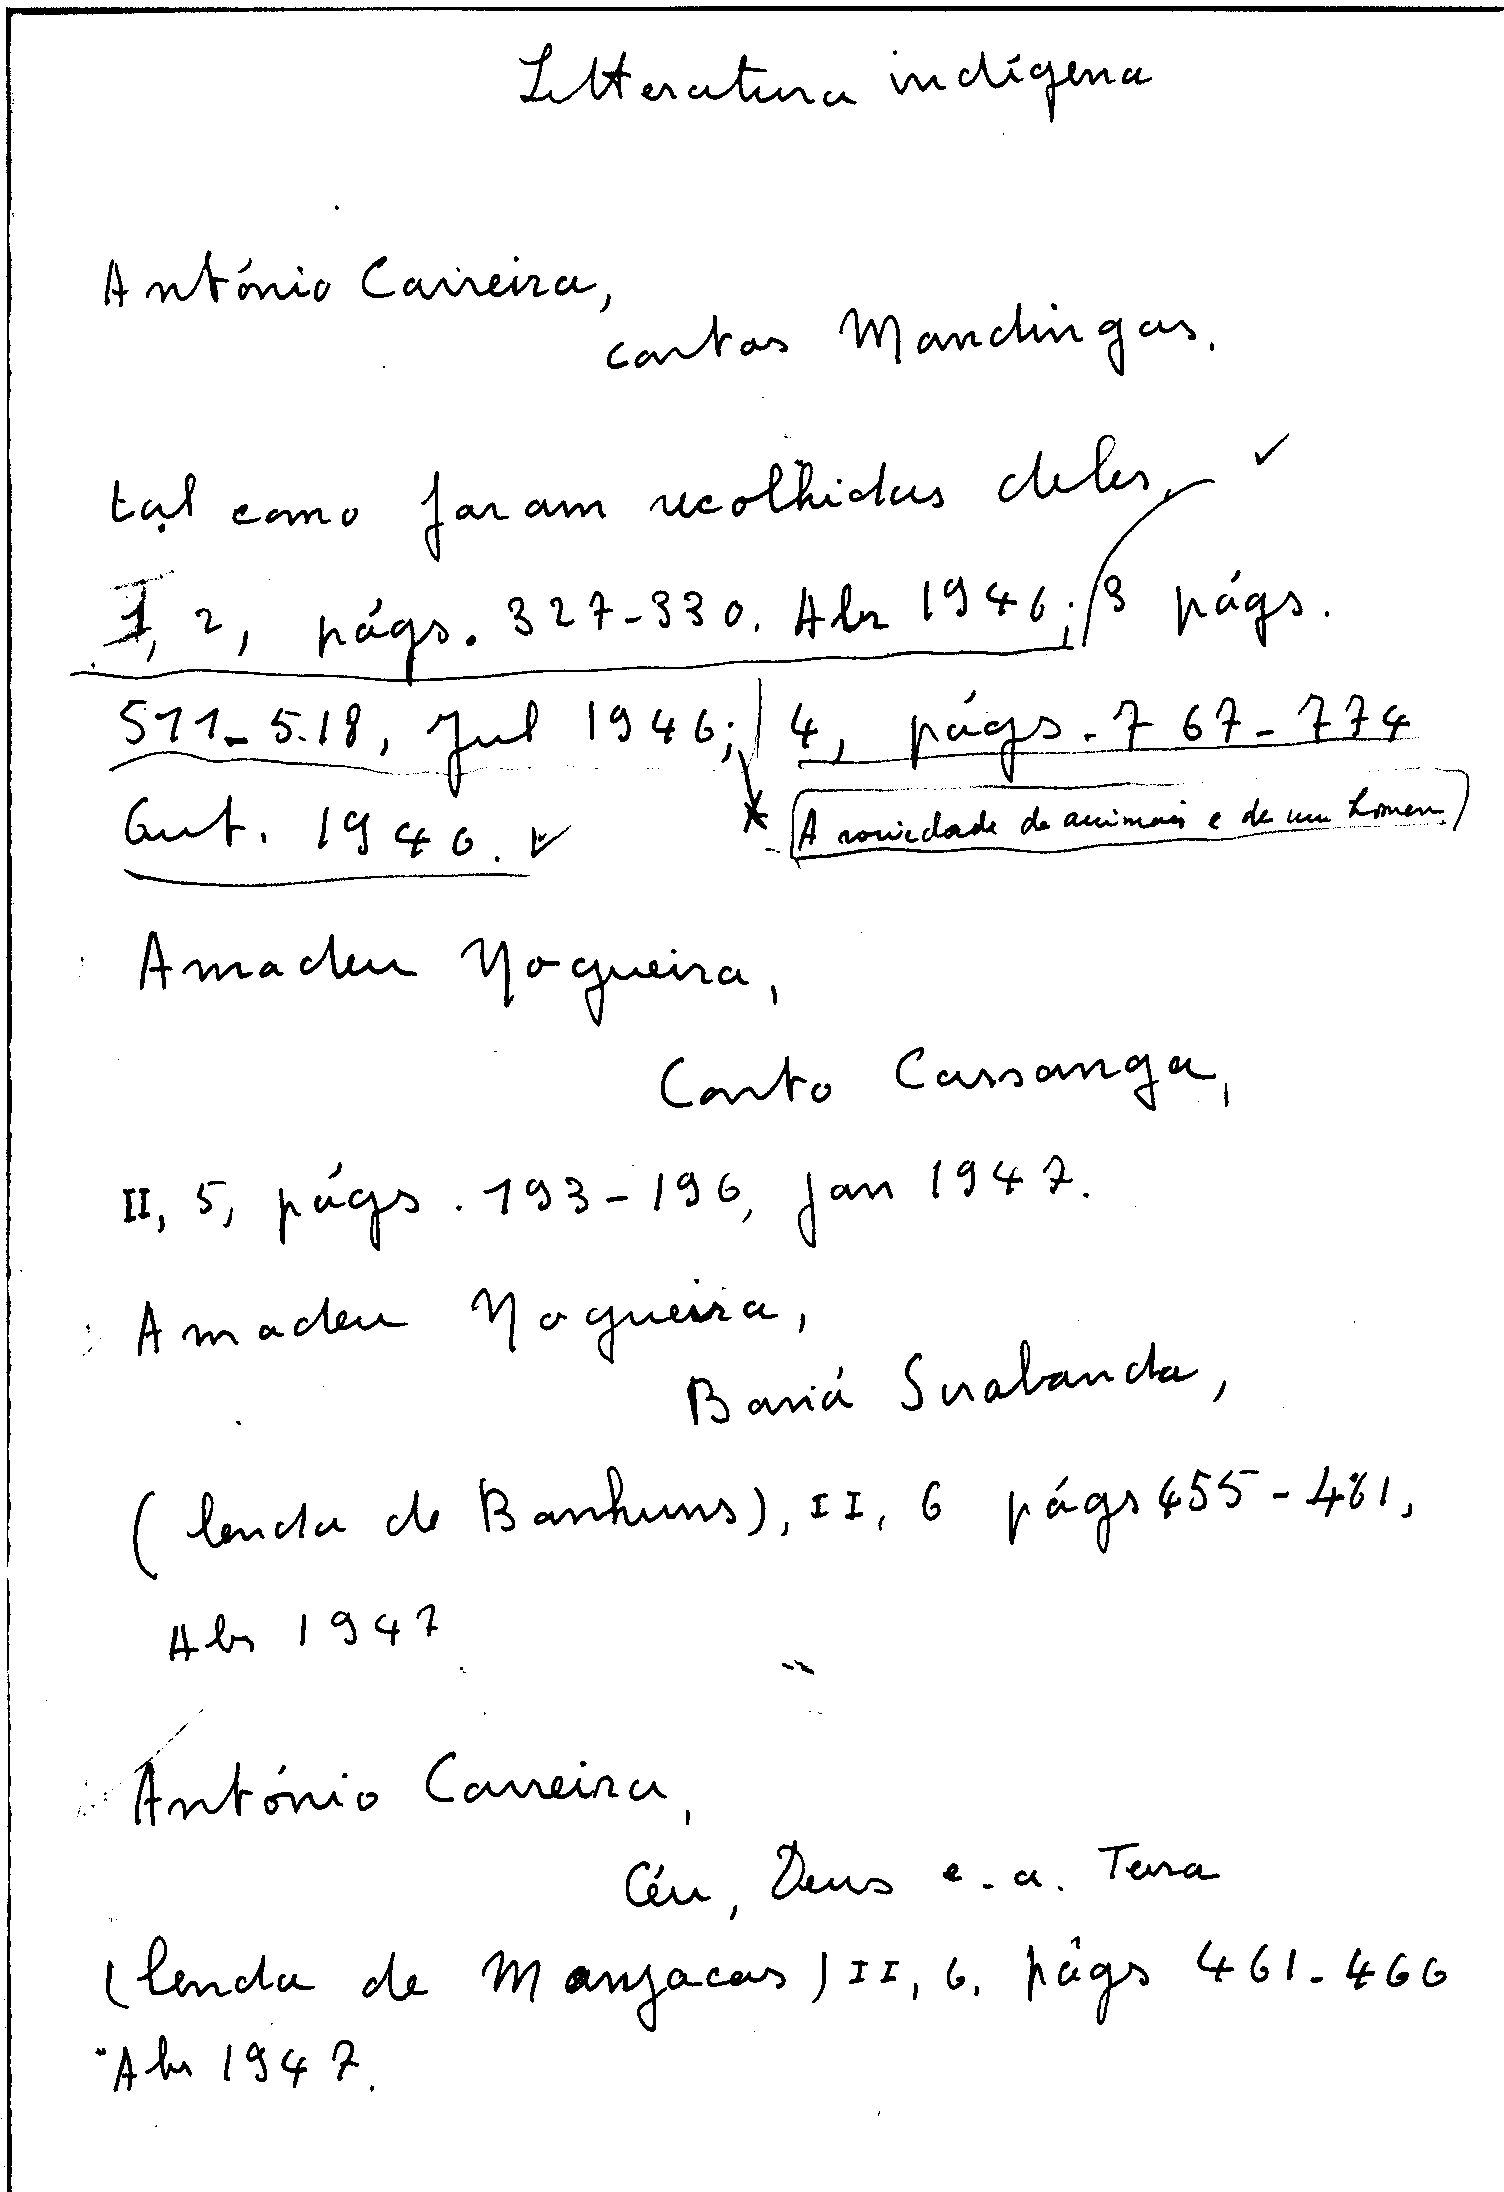 Litteratura indígena
António Carreira,
contos Mandingas.
tal como foram recolhidas deles, ✓
I, 2, págs. 327-330. Abr 1946; 3 págs.
511-518, Jul 1946; 4, págs. 767-774
Out. 1946. ✓
* A sociedade de animais e de um homem
Amadeu Nogueira,
Conto Cassanga,
II, 5, págs. 193-196, Jan 1947.
Amadeu Nogueira,
Bariá Surabanda,
(lenda de Banhuns), II, 6 págs 455-461,
Abr 1947
António Carreira,
Céu, Deus e a Terra
(lenda de Manjacas) II, 6, págs 461-466
Abr 1947.